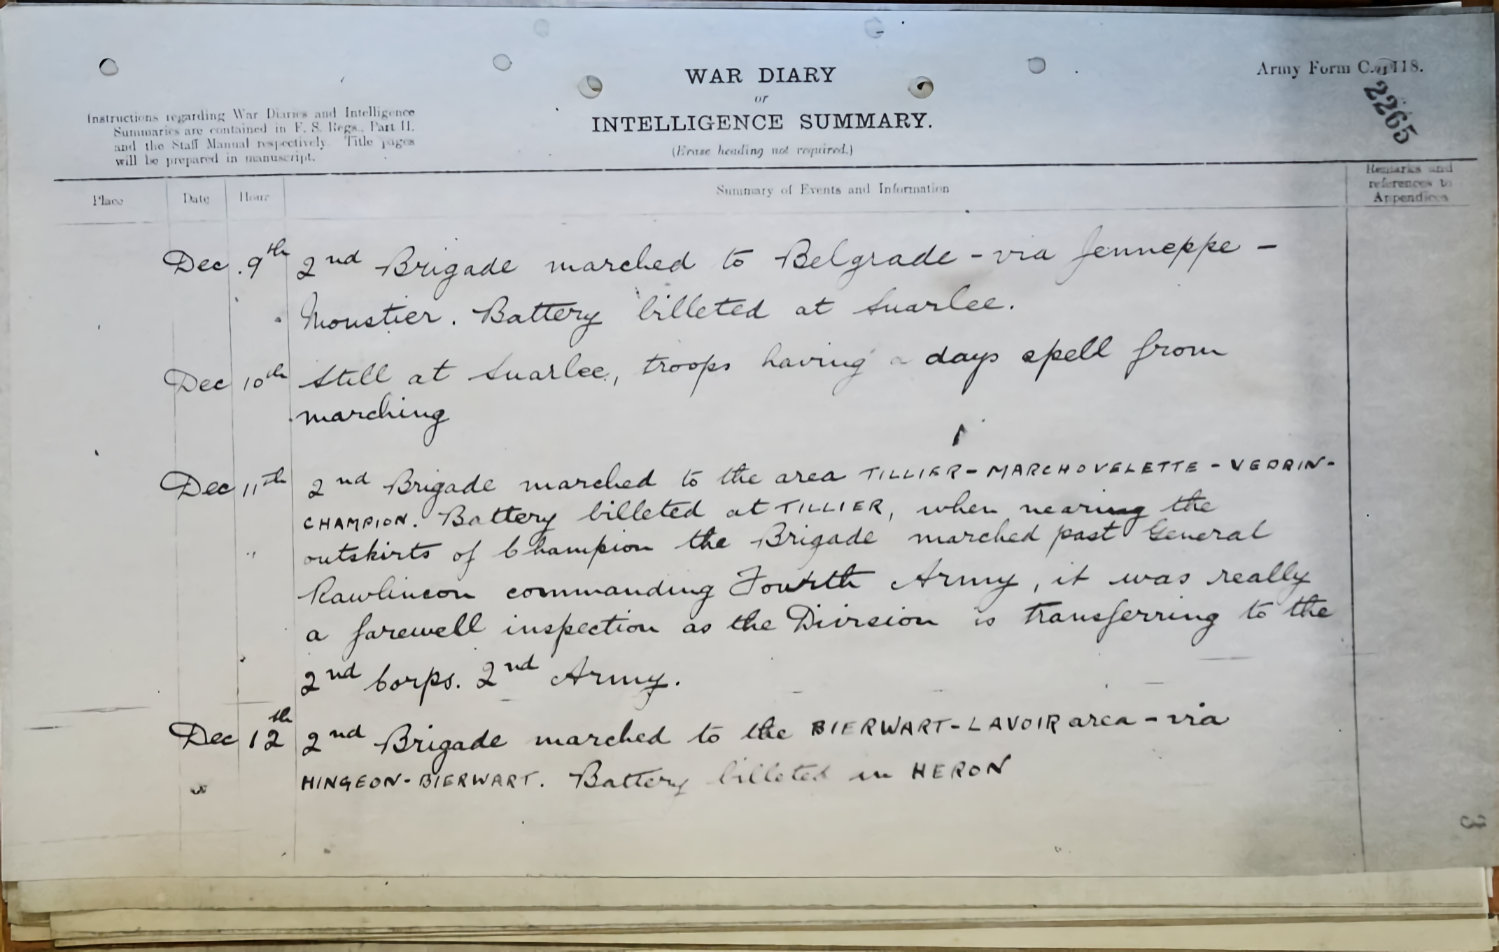 WAR DIARY
or
INTELLIGENCE SUMMARY.
(Erase heading not required.)
Army Form C. 2118.
2265
Instructions regarding War Diaries and Intelligence
Summaries are contained in F. S. Regs., Part II.
and the Staff Manual respectively. Title pages
will be prepared in manuscript.
Place Date Hour Summary of Events and Information
Remarks and
references to
Appendices
Dec. 9th 2nd Brigade marched to Belgrade - via Jenneppe -
Moustier. Battery billeted at Suarlee.
Dec 10th Still at Suarlee, troops having a days spell from
marching
Dec 11th 2nd Brigade marched to the area TILLIER - MARCHOVELETTE - VEDRIN -
CHAMPION. Battery billeted at TILLIER, when nearing the
outskirts of Champion the Brigade marched past General
Rawlinson commanding Fourth Army, it was really
a farewell inspection as the Division is transferring to the
2nd Corps. 2nd Army.
Dec 12th 2nd Brigade marched to the BIERWART - LAVOIR area - via
HINGEON - BIERWART. Battery billeted in HERON
3